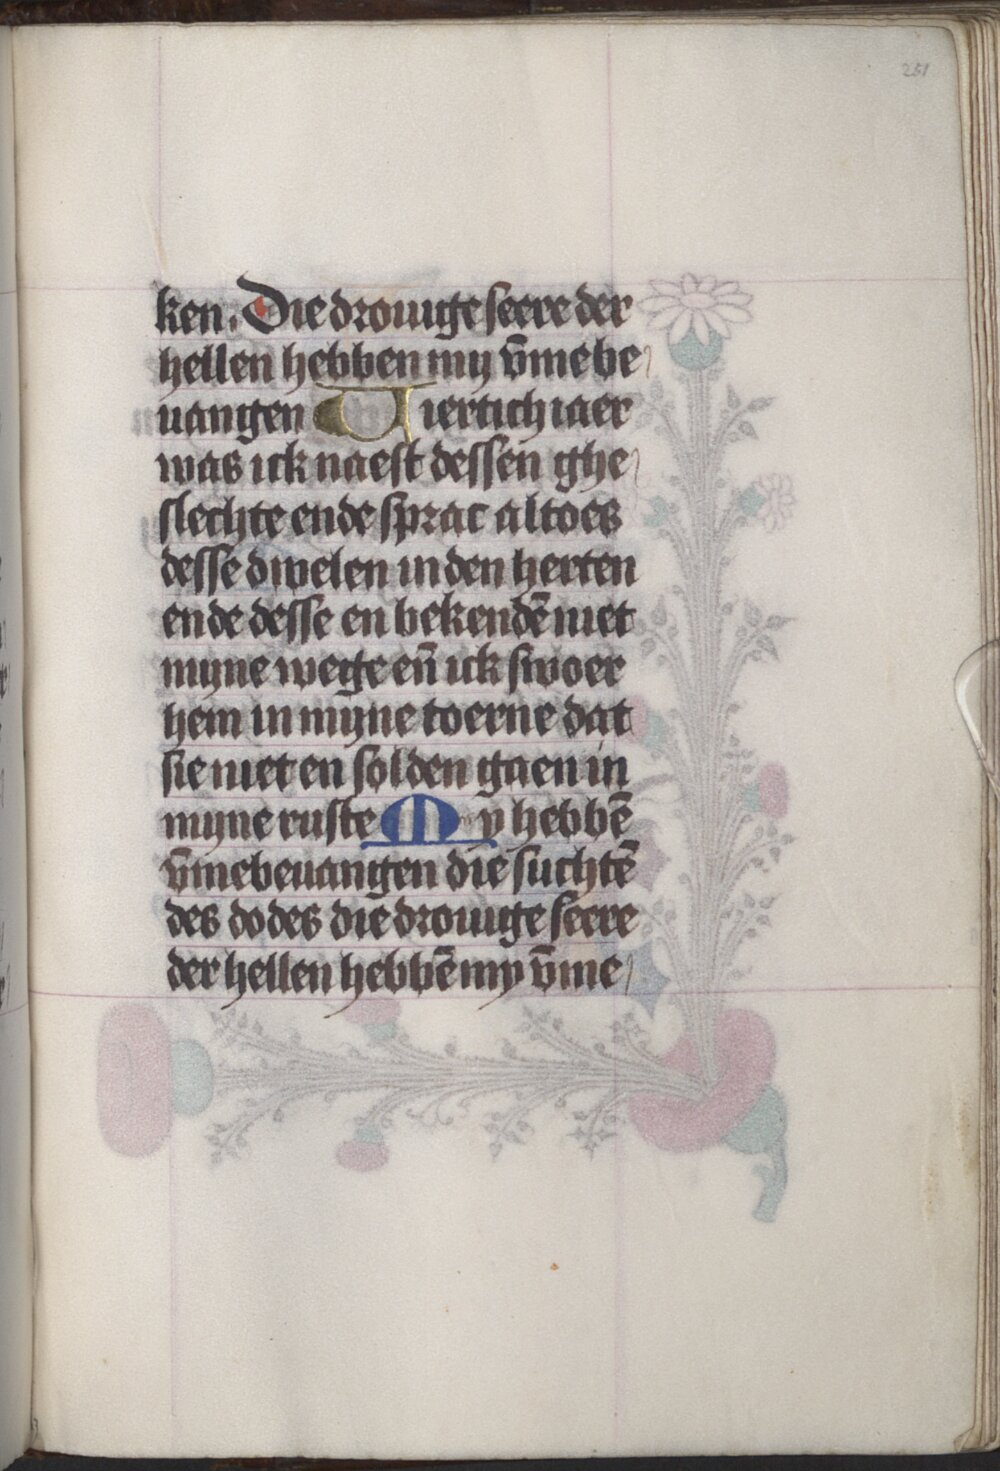 251
ken. Die drouuge seere der
hellen hebben my v̄mebe
uangen Viertich iaer
was ick naest dessen ghe
slechte ende sprac altoes
desse dwelen in den herten
ende desse en bekendē niet
myne wege eñ ick swoer
hem in myne toerne dat
sie niet en solden gaen in
myne ruste My hebbē
v̄mebeuangen die suchtē
des dodes die drouuge seere
der hellen hebbē my v̄me